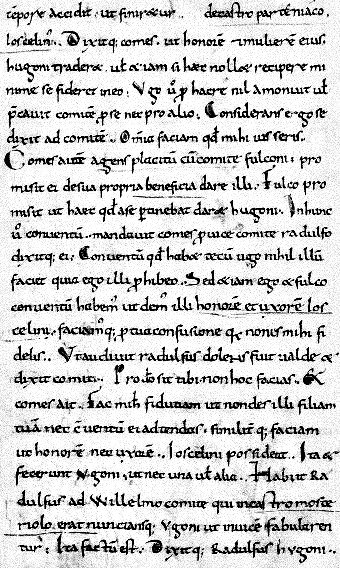 tēpore accidit ut finiretur de castro parteniaco,
Ioscelinꝰ. Dixitq; comes ut honorē &mulierē eius,
hugoni traderet, uł &iam si hæc nollet recipere mi
nime se fideret in eo. Vgo ū̊ p̱ hac re nil amonuit uł
p̱cauit comitē p̱ se nec pro alio. Considerans ergo se
dixit ad comitē. Om̄ia faciam qđ mihi iusseris.
Comes autē agens placitū cū comite fulconi, pro
misit ei de sua propria beneficia dare illi. Fulco pro
misit ut hæc qđ a se p̱tinebat daret hugoni. In hunc
ū̊ conuentū mandauit comes p̱ uice comite radulfo
dixitq; ei. Conuentū qđ habet tecū ugo nihil illū
faciet quia ego illi p̱hibeo. Sed &iam ego & fulco
conuentū habem̄ ut dem̄ illi honorē et uxorē Ios
celini, faciamꝰq; p̱ tua confusione q; non es mihi fi
delis. Vt audiuit radulfus dolens fuit ualde &
dixit comiti. Pro dō sit tibi non hoc facias. &
comes ait. Fac mih̄ fidutiam ut non des illi filiam
tuā nec c̄uentū ei adtendas, similit̄ q; faciam
ut honorē nec uxorē Ioscelini possideat. Ita &
fecerunt Vgoni, ut nec una uł alia. Habiit Ra
dulfus ad Willelmo comite qui in castro moste
riolo erat nuncians q; Vgoni ut inuicē fabularen
tur. Ita factū est. Dixitq; Radulfus hugoni.